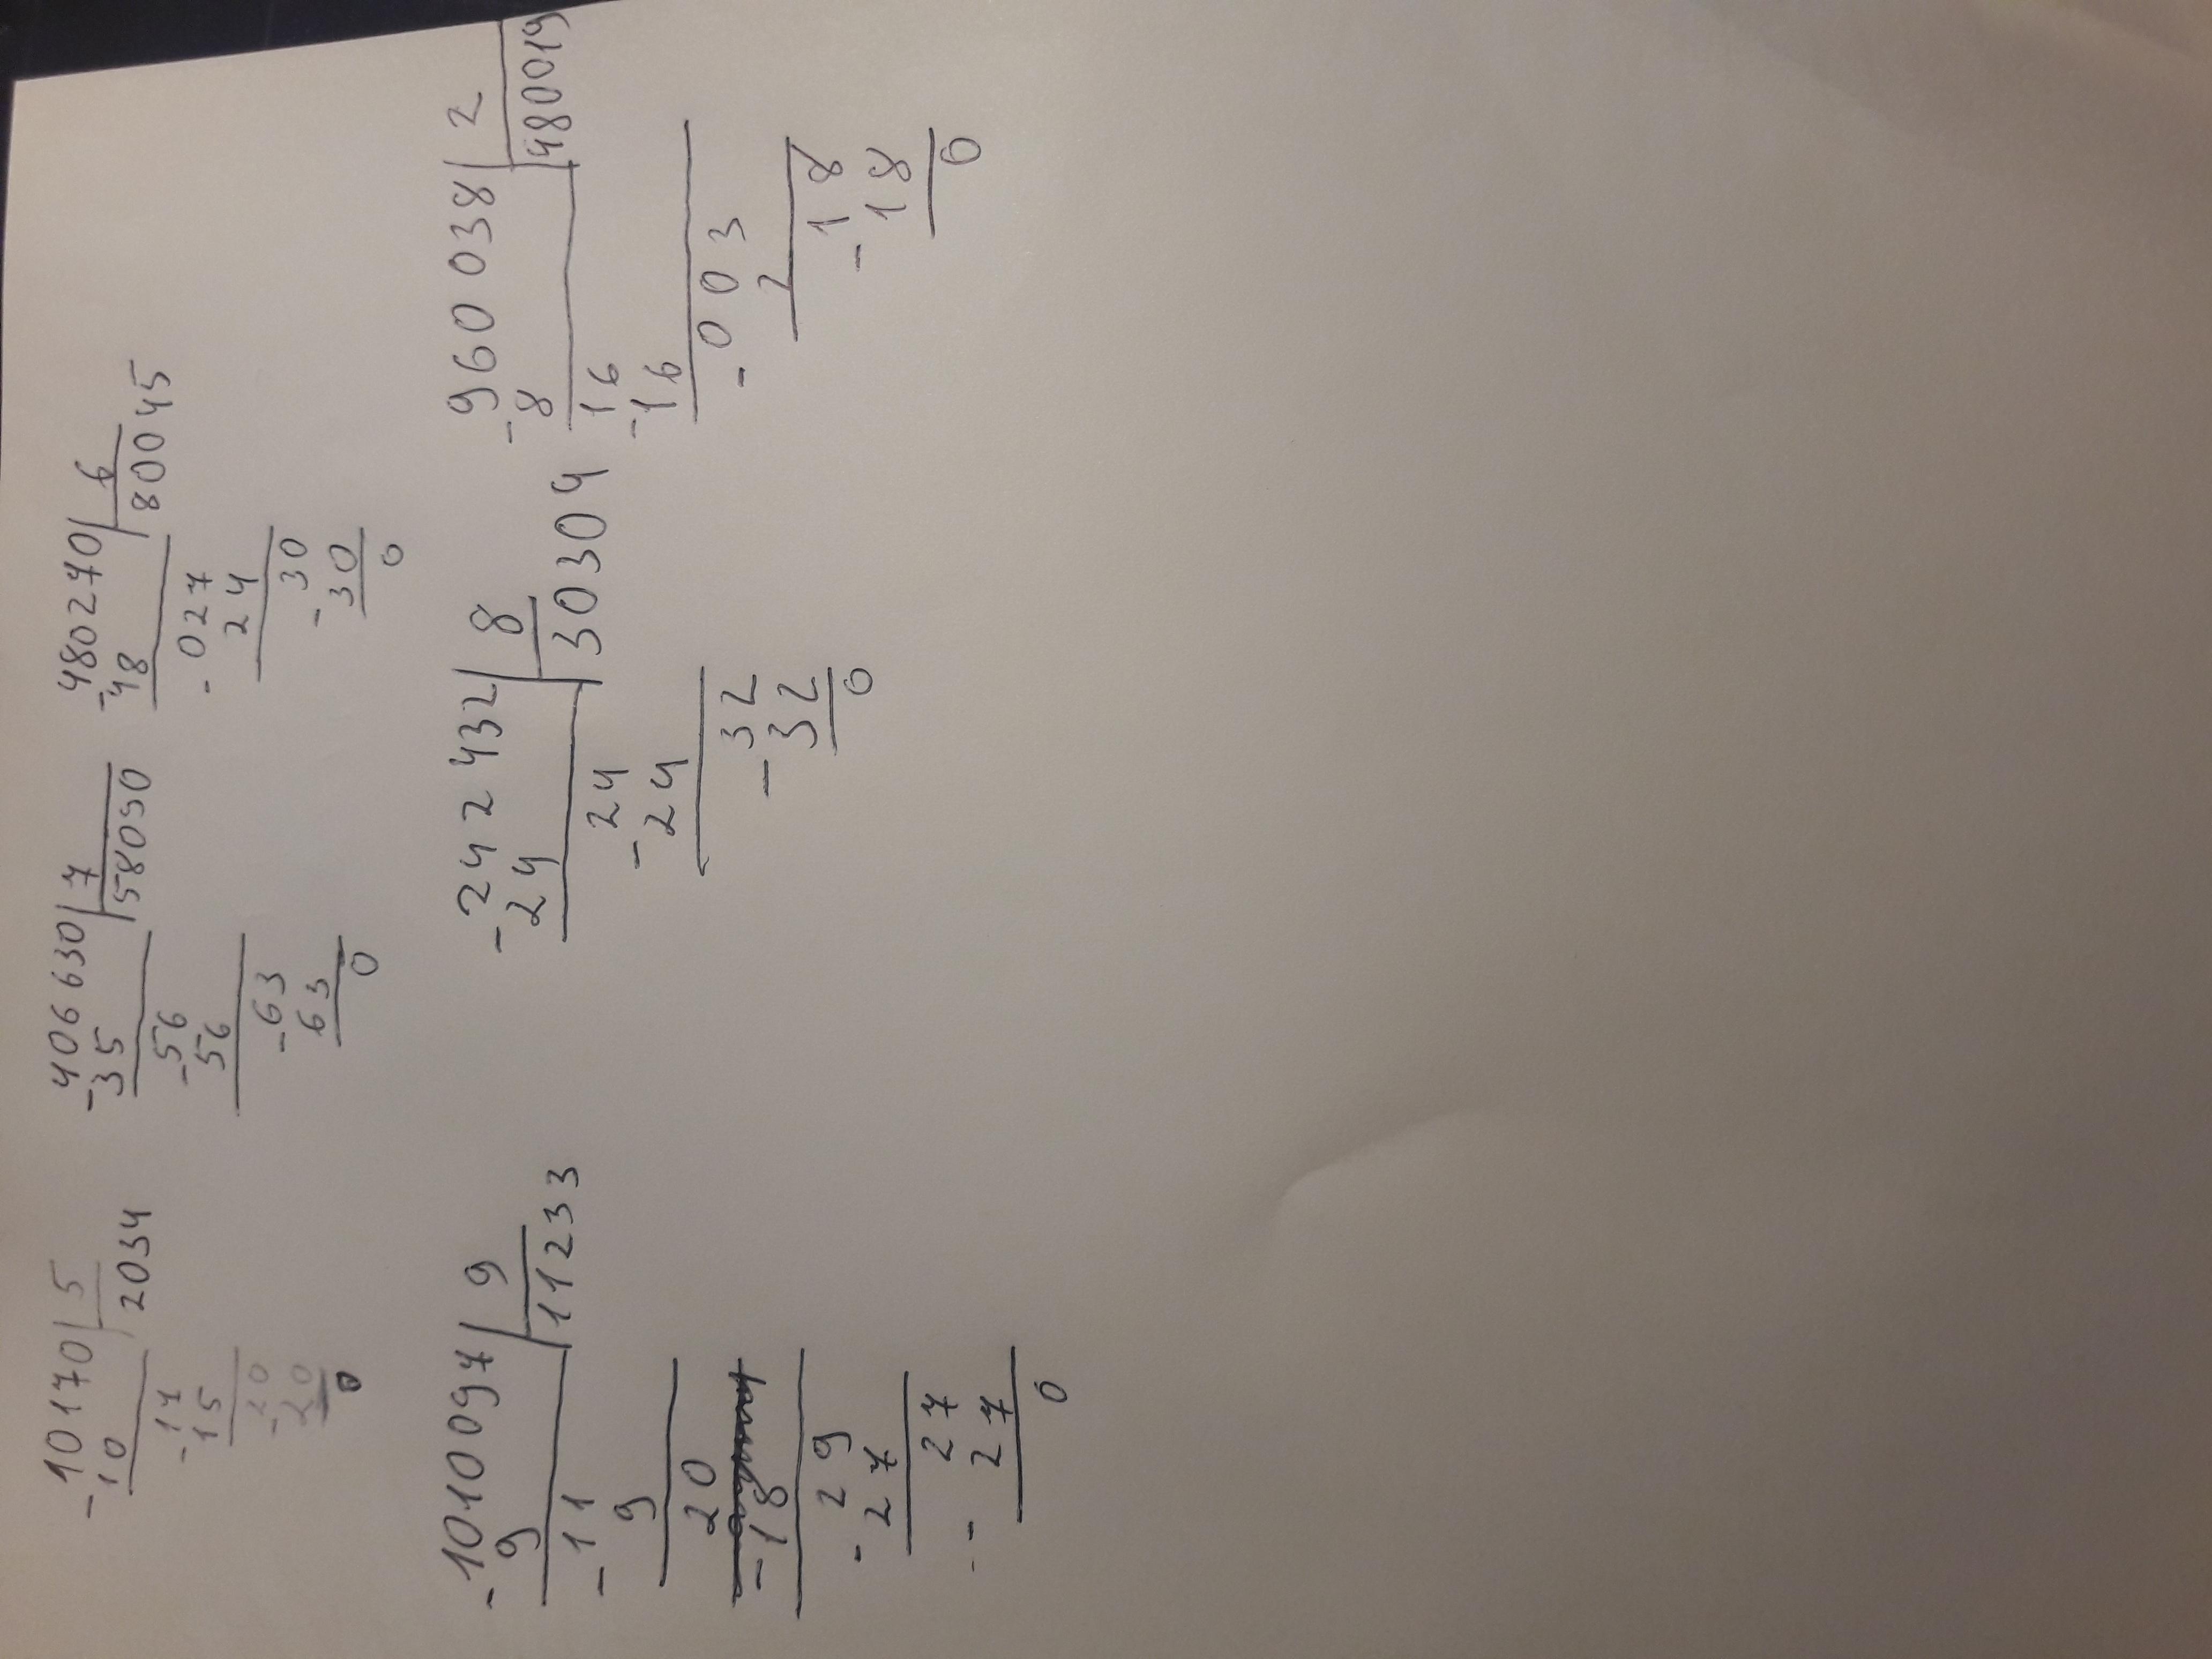 -10170 5
10 2034
-17
15
-20
20
0
-406630 7
35 58090
-56
56
-63
63
0
-480270 6
48 80045
-027
24
30
-30
0
-101097 9
9 11233
-11
9
20
-18
29
-27
27
-27
0
-242432 8
24 30304
24
-24
32
-32
0
960038 2
-8 480019
16
-16
003
-2
18
-18
0